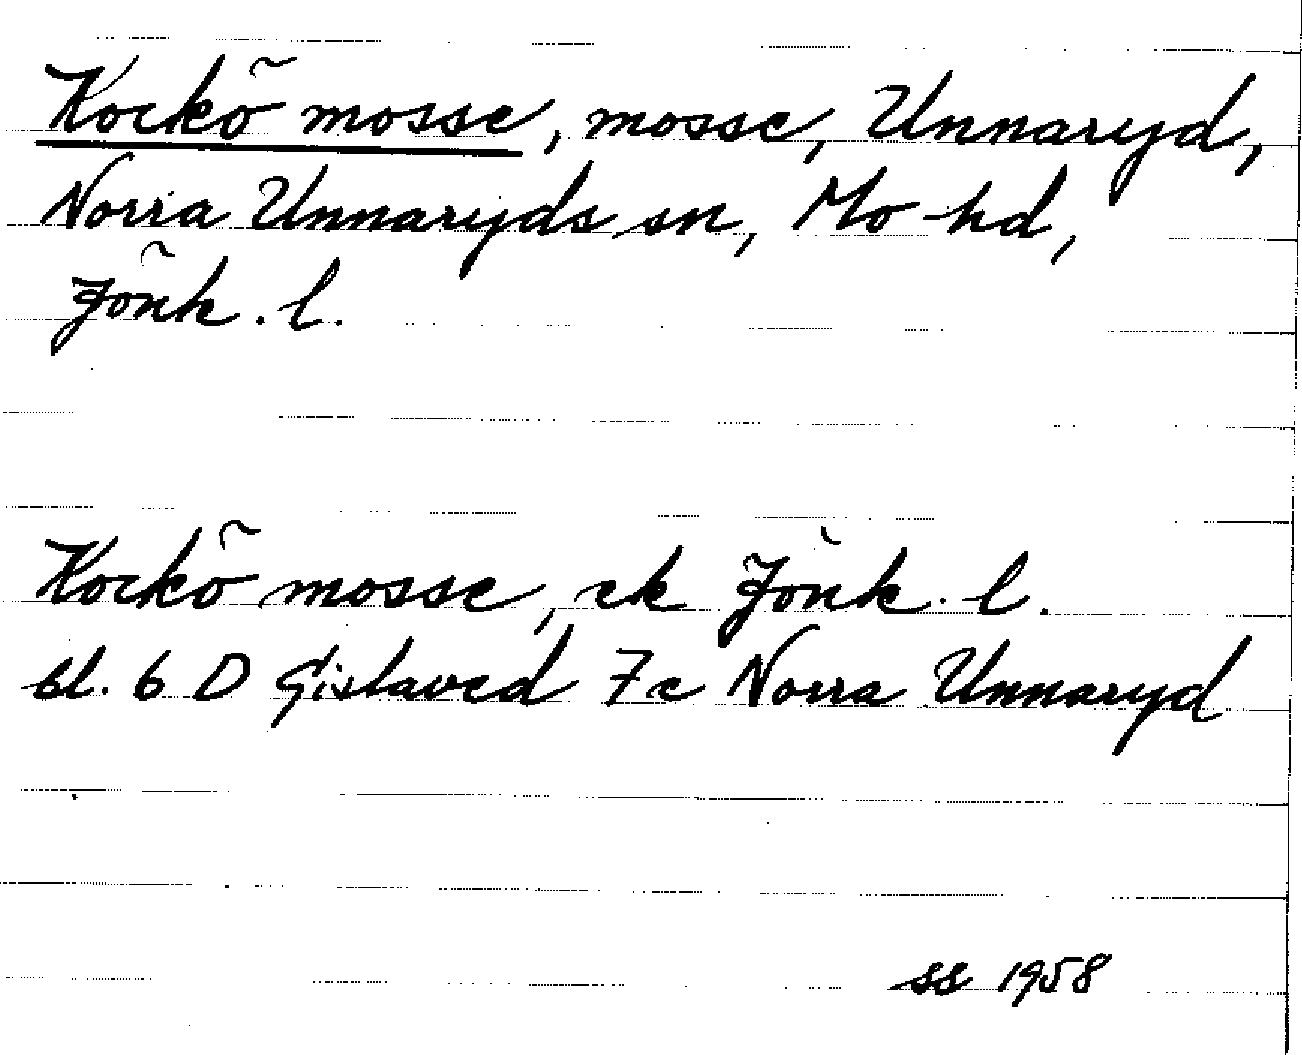 Kockö mosse, mosse, Unnaryd,
Norra Unnaryds sn, Mo hd,
Jönk. l.
Kockö mosse, ek Jönk. l.
bl. 6 D Gislaved 7c Norra Unnaryd
SS 1958